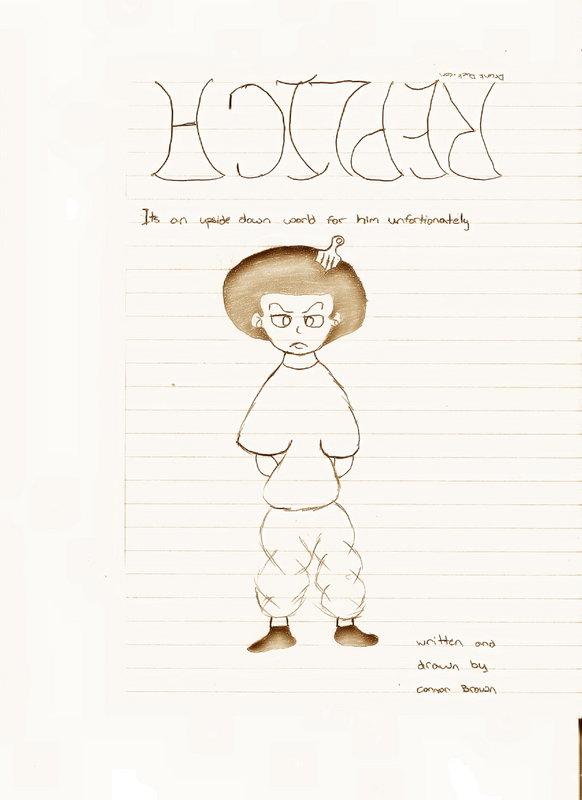 Drunk Duck.com
REPLICA
Its an upside down world for him unfortionately
written and
drawn by
Connor Brown